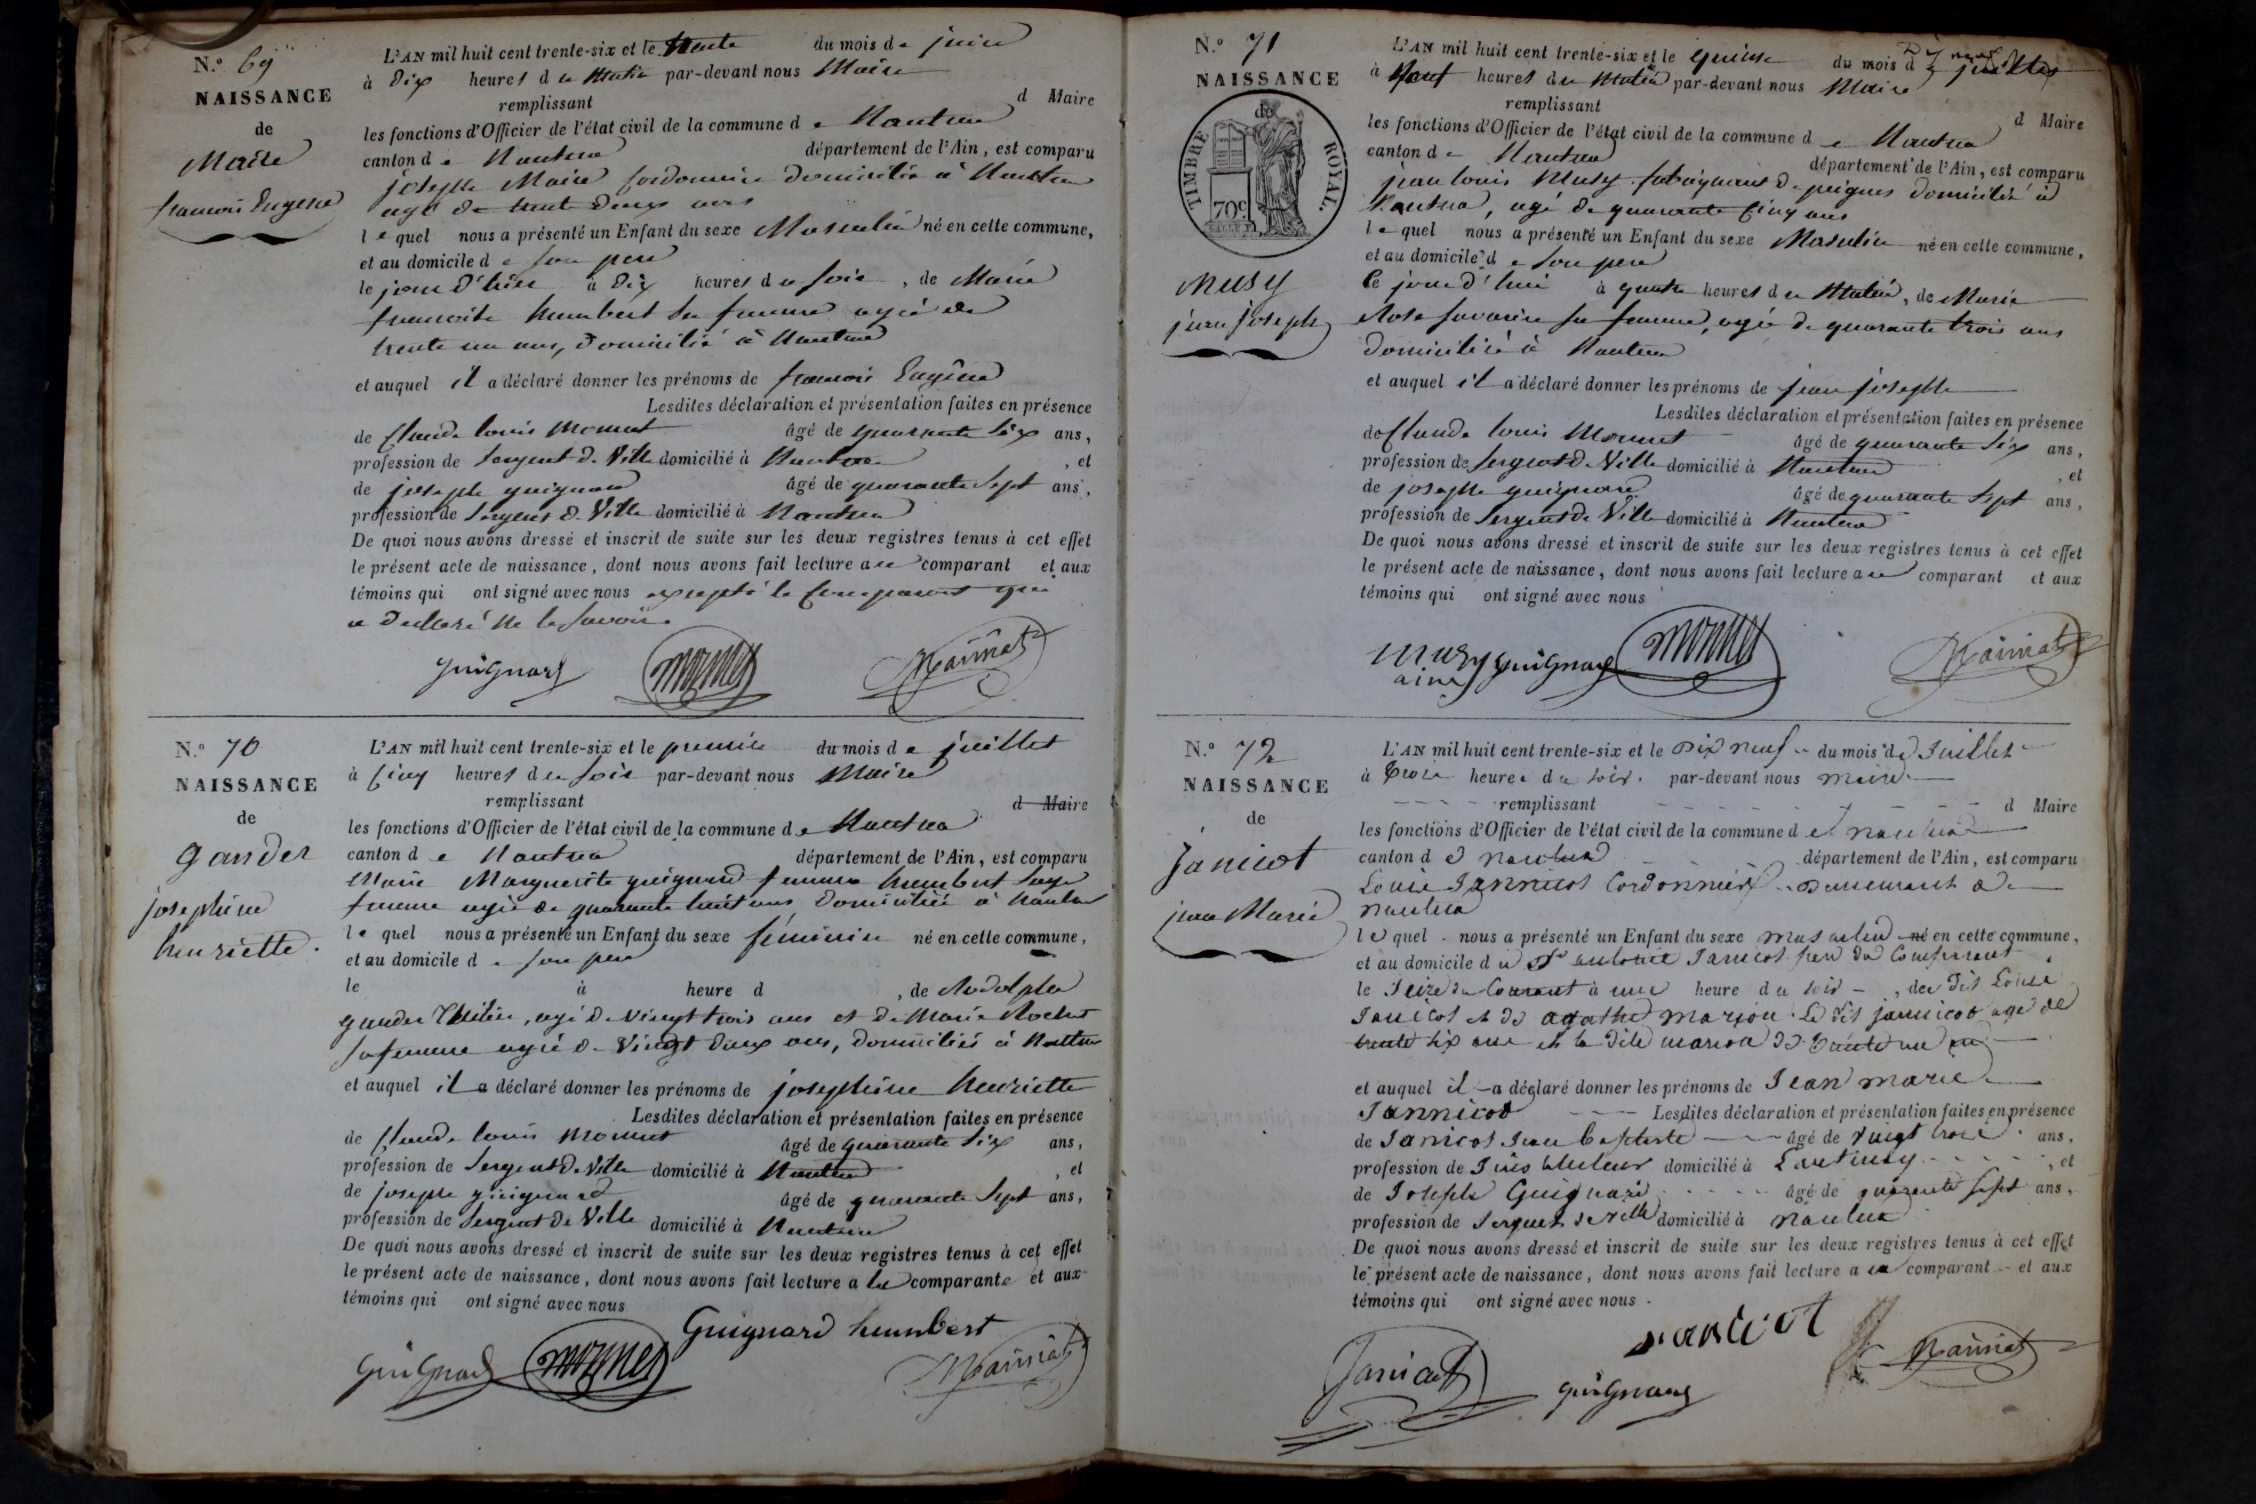 N.° 69
NAISSANCE
de
Maire
francois Eugene
L'AN mil huit cent trente-six et le trente du mois de juin
à Dix heures du Matin par-devant nous Maire
remplissant d Maire
les fonctions d'Officier de l'état civil de la commune de Nantua
canton de Nantua département de l'Ain, est comparu
joseph Maire Cordonnier domicilié à Nantua
agé de trente deux ans
lequel nous a présenté un Enfant du sexe Masculin né en cette commune,
et au domicile de son pere
le jour d'hier à dix heures du soir, de Marie
francoise humbert sa femme agée de
trente un ans, domicilié à Nantua
et auquel il a déclaré donner les prénoms de francois Eugène
Lesdites déclaration et présentation faites en présence
de Claude louis Monnet âgé de quarante six ans,
profession de Sergent de Ville domicilié à Nantua, et
de joseph guignard âgé de quarante sept ans,
profession de Sergent de Ville domicilié à Nantua
De quoi nous avons dressé et inscrit de suite sur les deux registres tenus à cet effet
le présent acte de naissance, dont nous avons fait lecture au comparant et aux
témoins qui ont signé avec nous excepté le Comparant qui
a declaré ne le savoir.
guignard monnet
N.° 70
NAISSANCE
de
gander
josephine
henriette.
L'AN mil huit cent trente-six et le premier du mois de juillet
à Cinq heures du soir par-devant nous Maire
remplissant d Maire
les fonctions d'Officier de l'état civil de la commune de Nantua
canton de Nantua département de l'Ain, est comparu
Marie Marguerite guignard femme humbert sage
femme agée de quarante huit ans domiciliée à Nantua
lequel nous a présenté un Enfant du sexe féminin né en cette commune,
et au domicile de son pere
le à heure d, de Rodolphe
gander, agé de Vingt trois ans et de Marie Rochet
sa femme agée de Vingt deux ans, domiciliés à Nantua
et auquel il a déclaré donner les prénoms de josephine henriette
Lesdites déclaration et présentation faites en présence
de Claude louis Monnet âgé de quarante six ans,
profession de Sergent de Ville domicilié à Nantua, et
de joseph guignard âgé de quarante sept ans,
profession de Sergent de Ville domicilié à Nantua
De quoi nous avons dressé et inscrit de suite sur les deux registres tenus à cet effet
le présent acte de naissance, dont nous avons fait lecture a la comparante et aux
témoins qui ont signé avec nous
Guignard humbert
guignard monnet
N.° 71
NAISSANCE
de
TIMBRE ROYAL.
70c
musy
jean joseph
L'AN mil huit cent trente-six et le quinze du mois de juillet
à Neuf heures du Matin par-devant nous Maire
remplissant d Maire
les fonctions d'Officier de l'état civil de la commune de Nantua
canton de Nantua département de l'Ain, est comparu
jean louis Musy fabriquant de peignes domicilié à
Nantua, agé de quarante Cinq ans
lequel nous a présenté un Enfant du sexe Masculin né en cette commune,
et au domicile de son pere
le jour d'hui à quatre heures du Matin, de Marie
Rose savarin sa femme, agée de quarante trois ans
domiciliée à Nantua
et auquel il a déclaré donner les prénoms de jean joseph
Lesdites déclaration et présentation faites en présence
de Claude louis Monnet âgé de quarante six ans,
profession de Sergent de Ville domicilié à Nantua, et
de joseph guignard âgé de quarante sept ans,
profession de Sergent de Ville domicilié à Nantua
De quoi nous avons dressé et inscrit de suite sur les deux registres tenus à cet effet
le présent acte de naissance, dont nous avons fait lecture au comparant et aux
témoins qui ont signé avec nous
musy guignard monnet
aine
N.° 72
NAISSANCE
de
Janicot
jean Marie
L'AN mil huit cent trente-six et le Dix neuf du mois de Juillet
à Trois heures du soir par-devant nous maire
remplissant d Maire
les fonctions d'Officier de l'état civil de la commune de nantua
canton de nantua département de l'Ain, est comparu
Louis Jannicot Cordonnier demeurant à
nantua
lequel nous a présenté un Enfant du sexe masculin né en cette commune,
et au domicile du Sr antoine Janicot pere du Comparant
le seize du Courant à une heure du soir, du dit Louis
Janicot et de agathe marion Le dit jannicot agé de
trente six ans et la dite marion de trente un an
et auquel il a déclaré donner les prénoms de Jean marie
Jannicot Lesdites déclaration et présentation faites en présence
de Janicot Jean baptiste âgé de vingt trois ans,
profession de domicilié à, et
de Joseph Guignard âgé de quarante sept ans,
profession de Sergent de ville domicilié à nantua
De quoi nous avons dressé et inscrit de suite sur les deux registres tenus à cet effet
le présent acte de naissance, dont nous avons fait lecture au comparant et aux
témoins qui ont signé avec nous.
Janicot
Janicot guignard